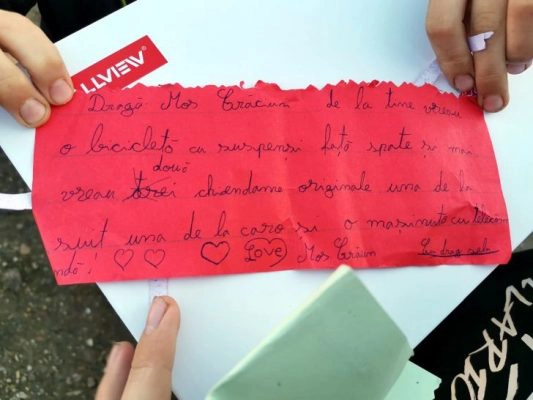 LLVIEW
Dragă Moș Crăciun de la tine vreau
o bicicletă cu suspensi față spate și mai
două
vreau trei chendama originale una de la
suit una de la caro si o mașinuță cu teleco
ndă!
Love Moș Crăciun Cu drag